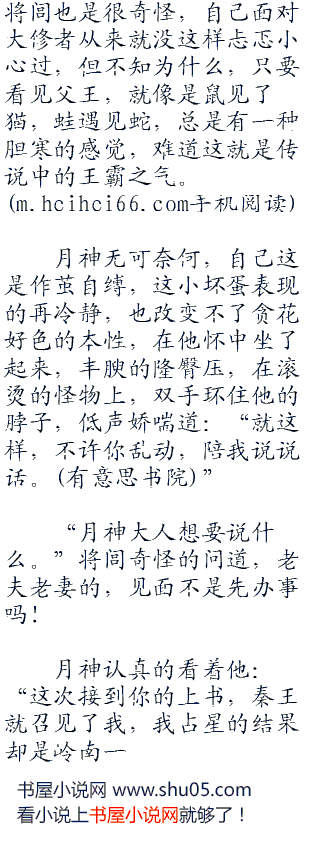 将闾也是很奇怪，自己面对
大修者从来就没这样忐忑小
心过，但不知为什么，只要
看见父王，就像是鼠见了
猫，蛙遇见蛇，总是有一种
胆寒的感觉，难道这就是传
说中的王霸之气。
(m.hcihci66.com手机阅读)
月神无可奈何，自己这
是作茧自缚，这小坏蛋表现
的再冷静，也改变不了贪花
好色的本性，在他怀中坐了
起来，丰腴的隆臀压，在滚
烫的怪物上，双手环住他的
脖子，低声娇喘道：“就这
样，不许你乱动，陪我说说
话。(有意思书院)”
“月神大人想要说什
么。”将闾奇怪的问道，老
夫老妻的，见面不是先办事
吗！
月神认真的看着他：
“这次接到你的上书，秦王
就召见了我，我占星的结果
却是岭南一
书屋小说网 www.shu05.com
看小说上书屋小说网就够了！